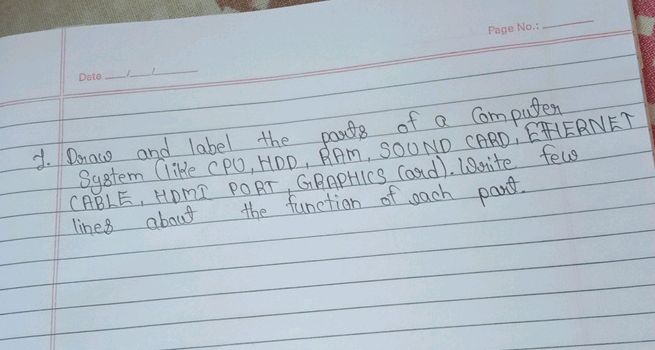 Page No.:
Date / /
1. Draw and label the parts of a Computer
System (like CPU, HDD, RAM, SOUND CARD, ETHERNET
CABLE, HDMI PORT, GRAPHICS Card). Write few
lines about the function of each part.